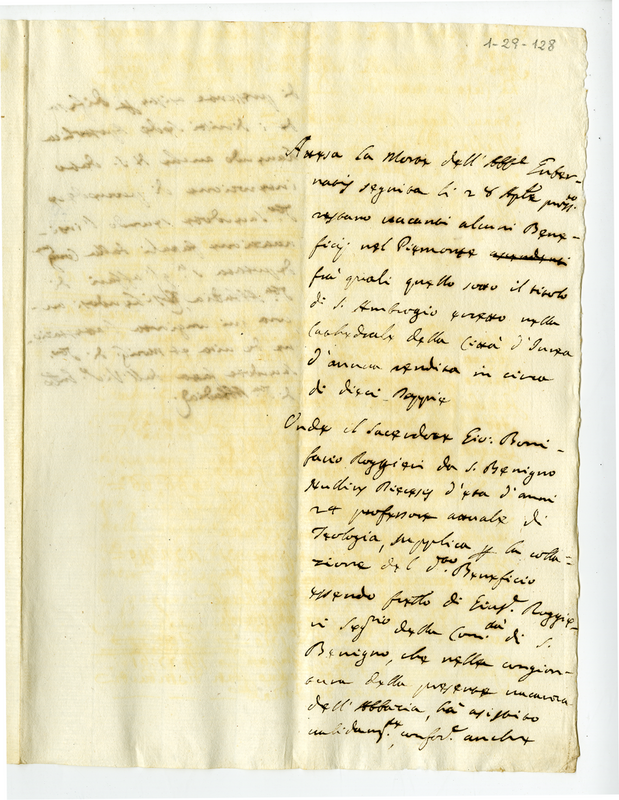 1-29-128
Attesa la Morte dell' Abbe Euber-
natis seguita li 28 Aple pross.o
restano vacanti alcuni Bene-
ficj nel Piemonte
frà quali quello sotto il titolo
di S. Ambrogio eretto nella
Cathedrale della Città d'Ivrea
d'annua rendita in circa
di dieci Doppie
Onde il Sacerdote Gio: Boni-
facio Roggieri da S. Benigno
Nullius Diecesis d'età d'anni
24 professore attuale di
Teologia, supplica p la colla-
zione del d.to Beneficio
essendo frello di Giuse. Roggie-
ri Segrio della Com.tà di S.
Benigno, che nella congion-
tura della presente vacanza
dell'Abbazia, hà assistito
validam.te, conford. anche